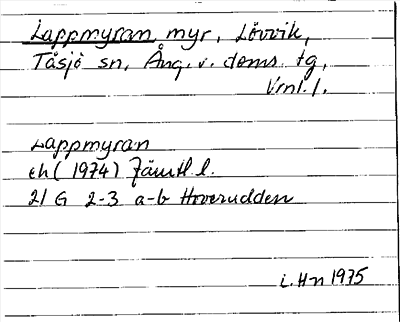 Lappmyran, myr, Lövvik,
Tåsjö sn, Ång. v. doms. tg,
Vrnl. l.
Lappmyran
ek (1974) Jämtl. l.
21 G 2-3 a-b Hoverudden
i. Hn 1975